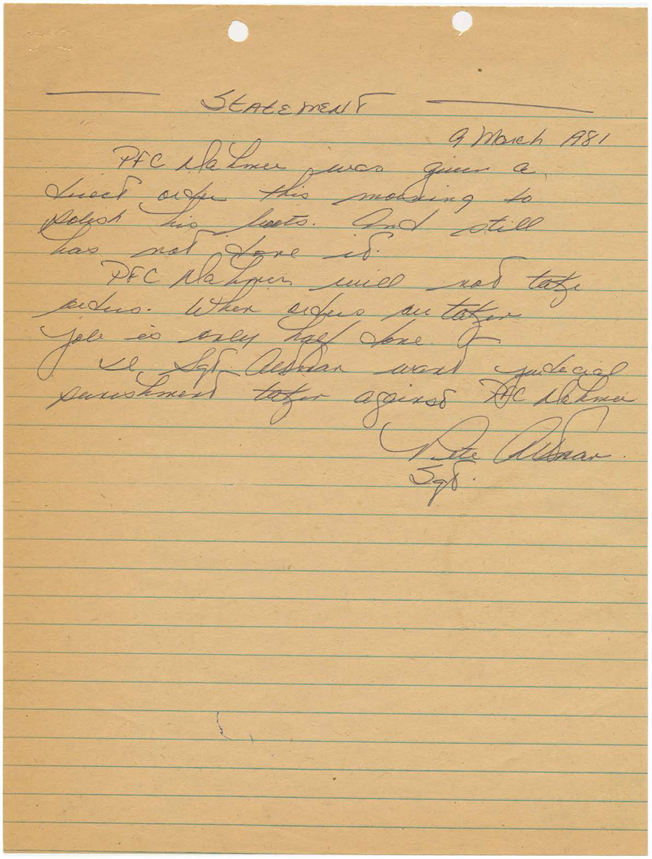 STATEMENT
9 March 1981
PFC Dahmer was given a
direct order this morning to
polish his boots. And still
has not done it.
PFC Dahmer will not take
orders. When orders are taken
job is only half done.
I, Sgt. want judecial
punishment taken against PFC Dahmer
Pete
Sgt.